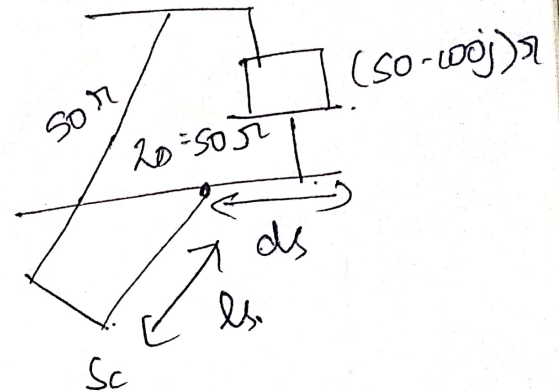 50Ω
(50-100j)Ω
Z0=50Ω
ds
ls.
Sc